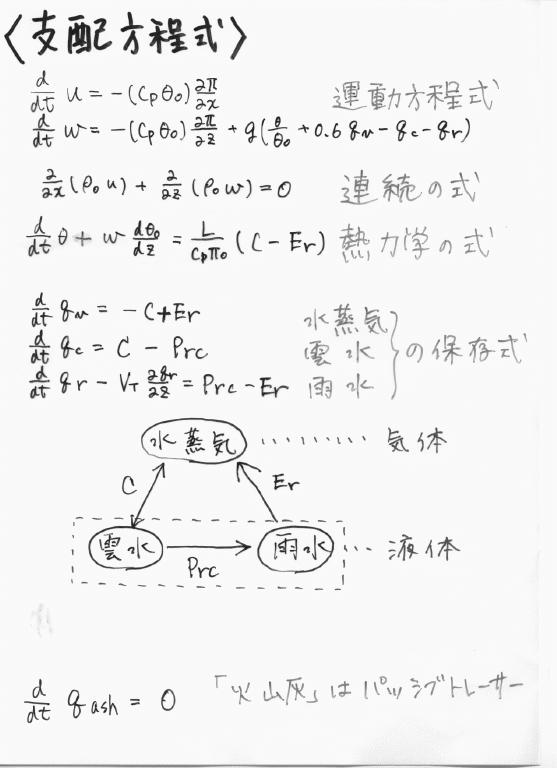 〈支配方程式〉
d/dt u = -(Cpθ₀) ∂π/∂x 運動方程式
d/dt w = -(Cpθ₀) ∂π/∂z + g(θ/θ₀ + 0.6 qv - qc - qr)
∂/∂x (ρ₀u) + ∂/∂z (ρ₀w) = 0 連続の式
d/dt θ + w dθ₀/dz = L/CpΠ₀ (C - Er) 熱力学の式
d/dt qv = -C + Er 水蒸気
d/dt qc = C - Prc 雲水 } の保存式
d/dt qr - VT ∂qr/∂z = Prc - Er 雨水
水蒸気 ………… 気体
C Er
雲水 雨水 … 液体
Prc
d/dt qash = 0 「火山灰」はパッシブトレーサー